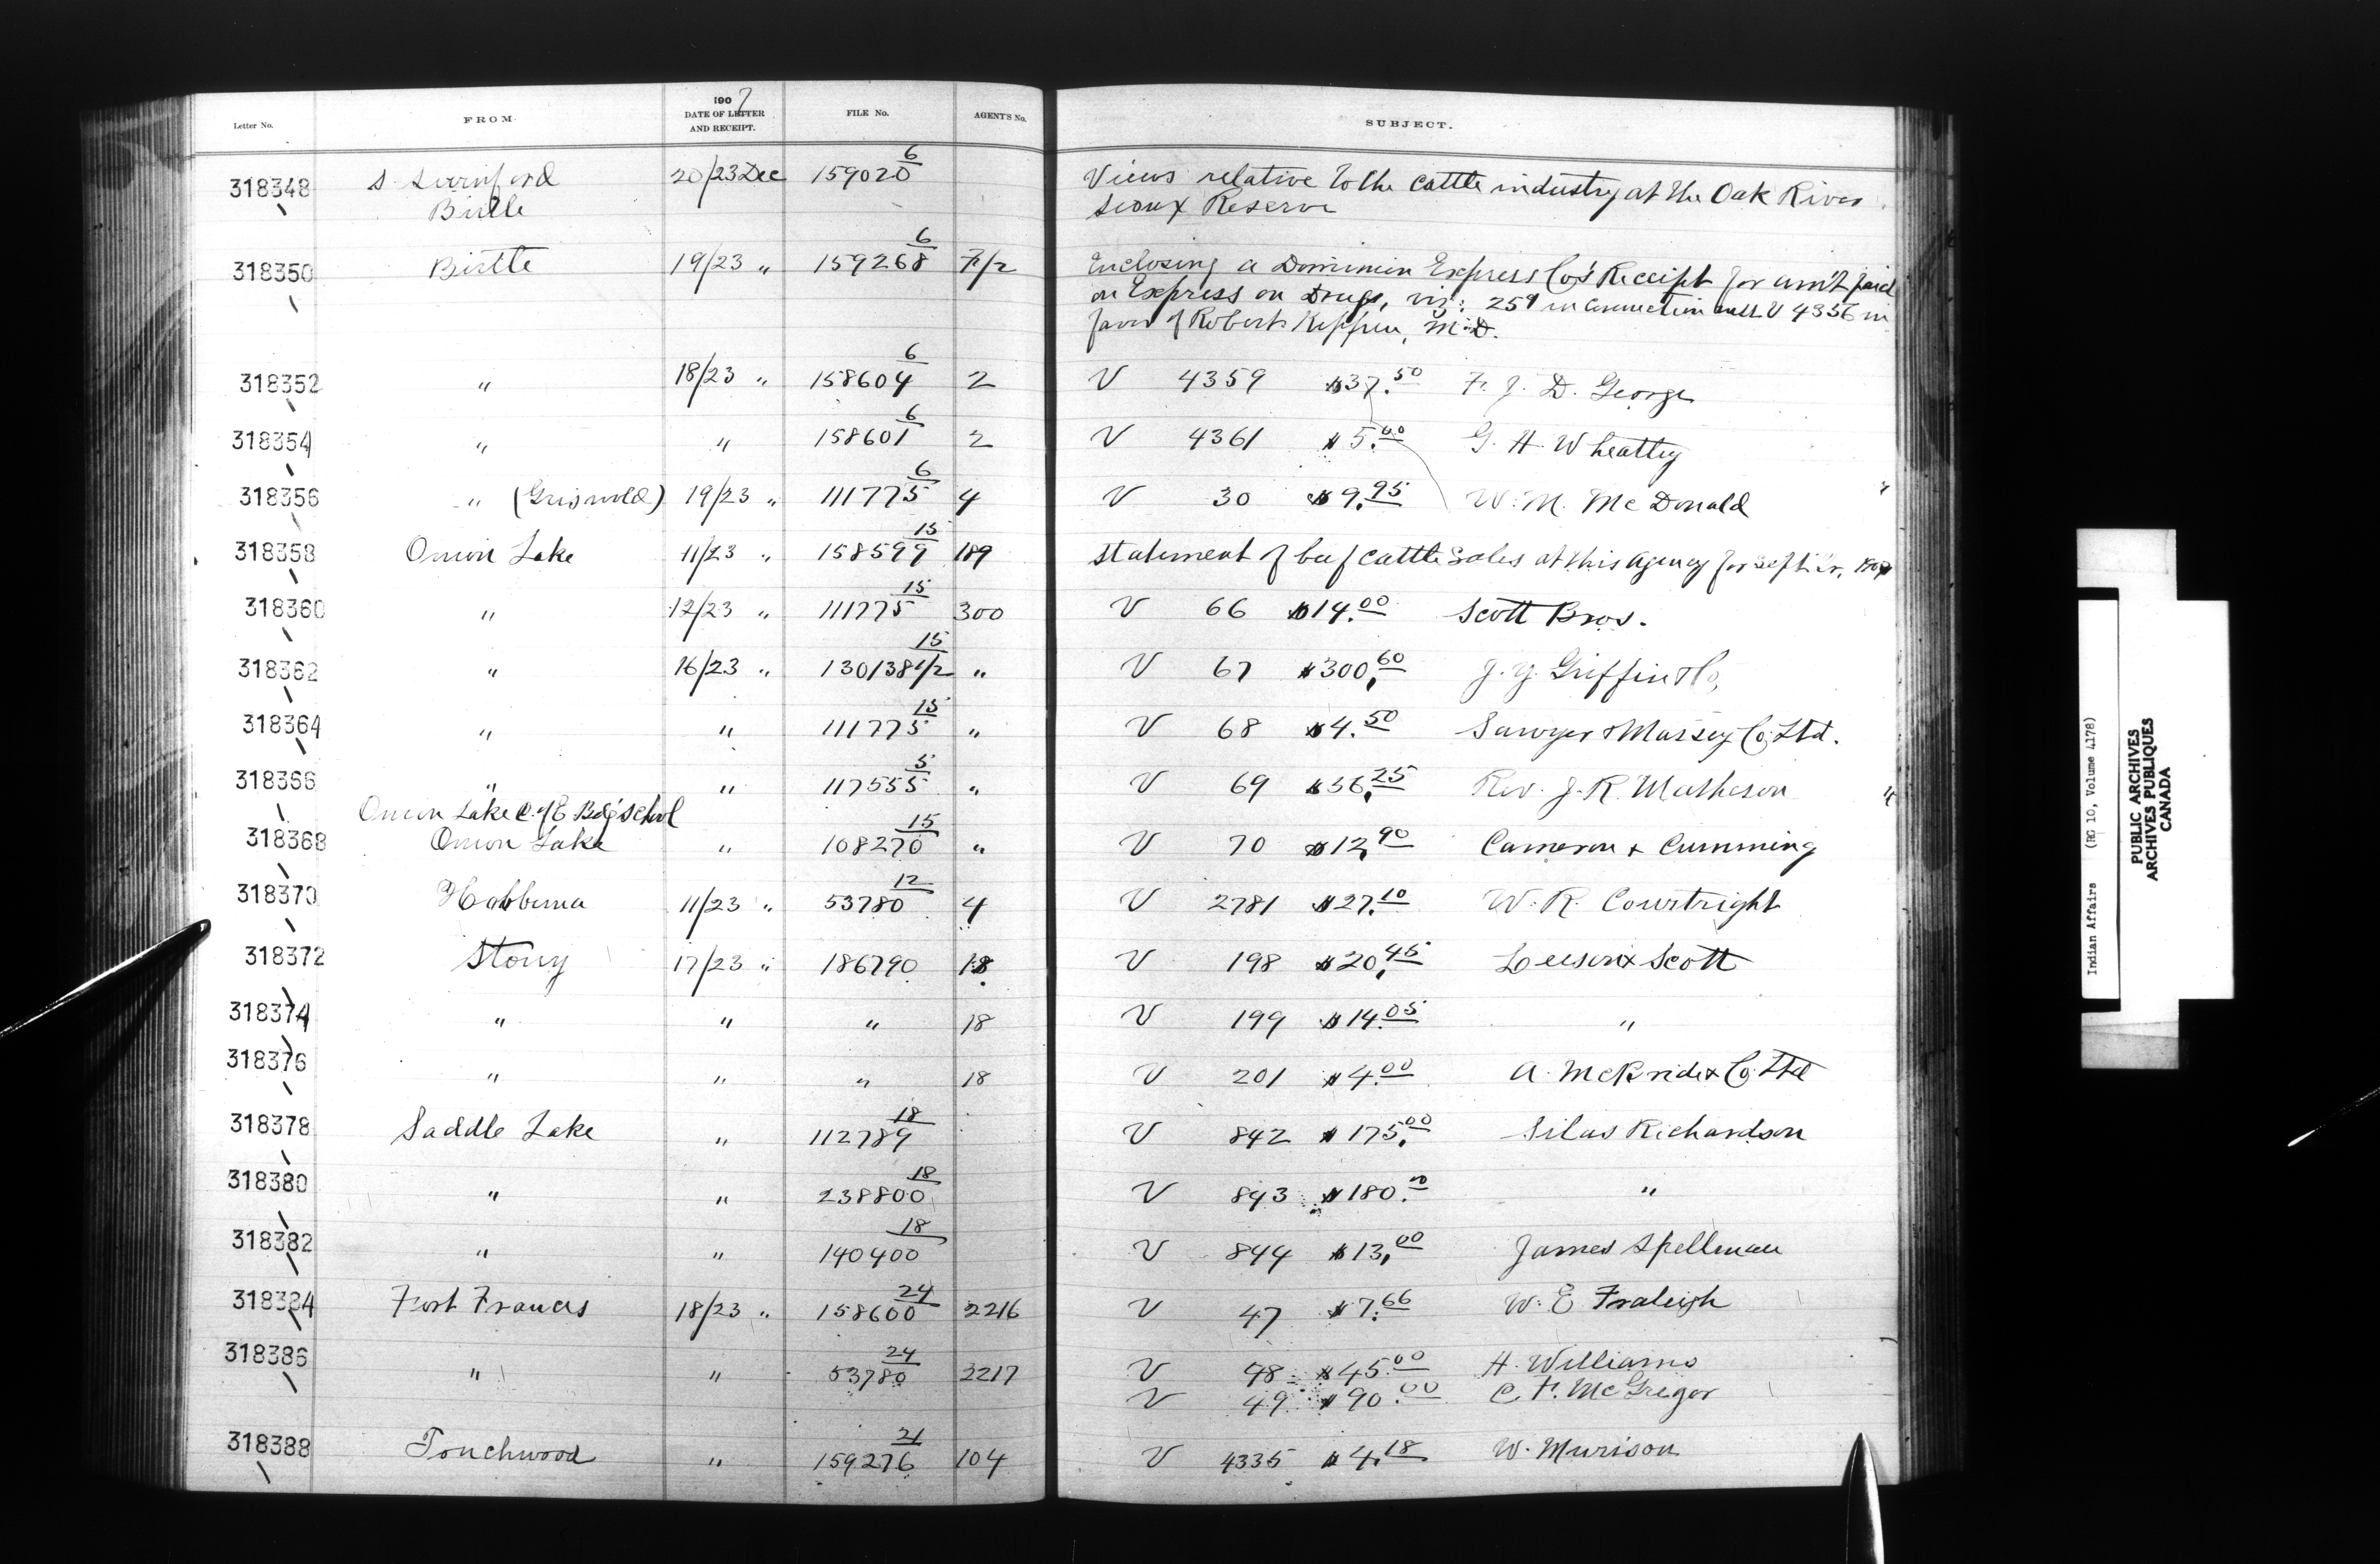 Letter No. FROM. 1907 DATE OF LETTER AND RECEIPT. FILE No. AGENT'S No. SUBJECT.
318348 S. Swinford 20/23 Dec 159020 6 Views relative to the cattle industry at the Oak River
Birtle Sioux Reserve
318350 Birtle 19/23 " 159268 6 F/2 Enclosing a Dominion Express Co's Receipt for am't paid
on Express on Drugs, viz: 25¢ in connection with V 4356 in
favor of Robert M.D.
318352 " 18/23 " 158604 6 2 V 4359 $37.50 F. J. D. George
318354 " " 158601 6 2 V 4361 $5.00 G. H. Wheatley
318356 " (Griswold) 19/23 " 111775 6 4 V 30 $9.95 W. M. McDonald
318358 Onion Lake 11/23 " 158599 15 189 Statement of beef cattle sales at this Agency for Sept'br,
318360 " 12/23 " 111775 15 300 V 66 $14.00 Scott Bros.
318362 " 16/23 " 130138 1/2 15 " V 67 $300.60 J. Y. Griffin & Co,
318364 " " 111775 15 " V 68 $4.50 Sawyer & Massey Co Ltd.
318366 " " 117555 5 " V 69 $56.25 Rev. J. R. Matheson
Onion Lake C. of E. Bdg School
318368 Onion Lake " 108270 15 " V 70 $12.90 Cameron & Cumming
318370 Hobbema 11/23 " 53780 12 4 V 2781 $27.10 W. R. Courtright
318372 Stony 17/23 " 186790 18 V 198 $20.45 Leeson & Scott
318374 " " " 18 V 199 $14.05 "
318376 " " " 18 V 201 $4.00 A. McBride & Co Ltd
318378 Saddle Lake " 112789 18 V 842 $175.00 Silas Richardson
318380 " " 238800 18 V 843 $180.00 "
318382 " " 140400 18 V 844 $13.00 James Spellman
318384 Fort Frances 18/23 " 158600 24 2216 V 47 $7.66 W. E. Fraleigh
318386 " " 53780 24 2217 V 48 $45.00 H. Williams
V 49 $90.00 C. F. McGregor
318388 Touchwood " 159276 21 104 V 4335 $4.18 W. Murison
Indian Affairs (RG 10, Volume 4178)
PUBLIC ARCHIVES
ARCHIVES PUBLIQUES
CANADA